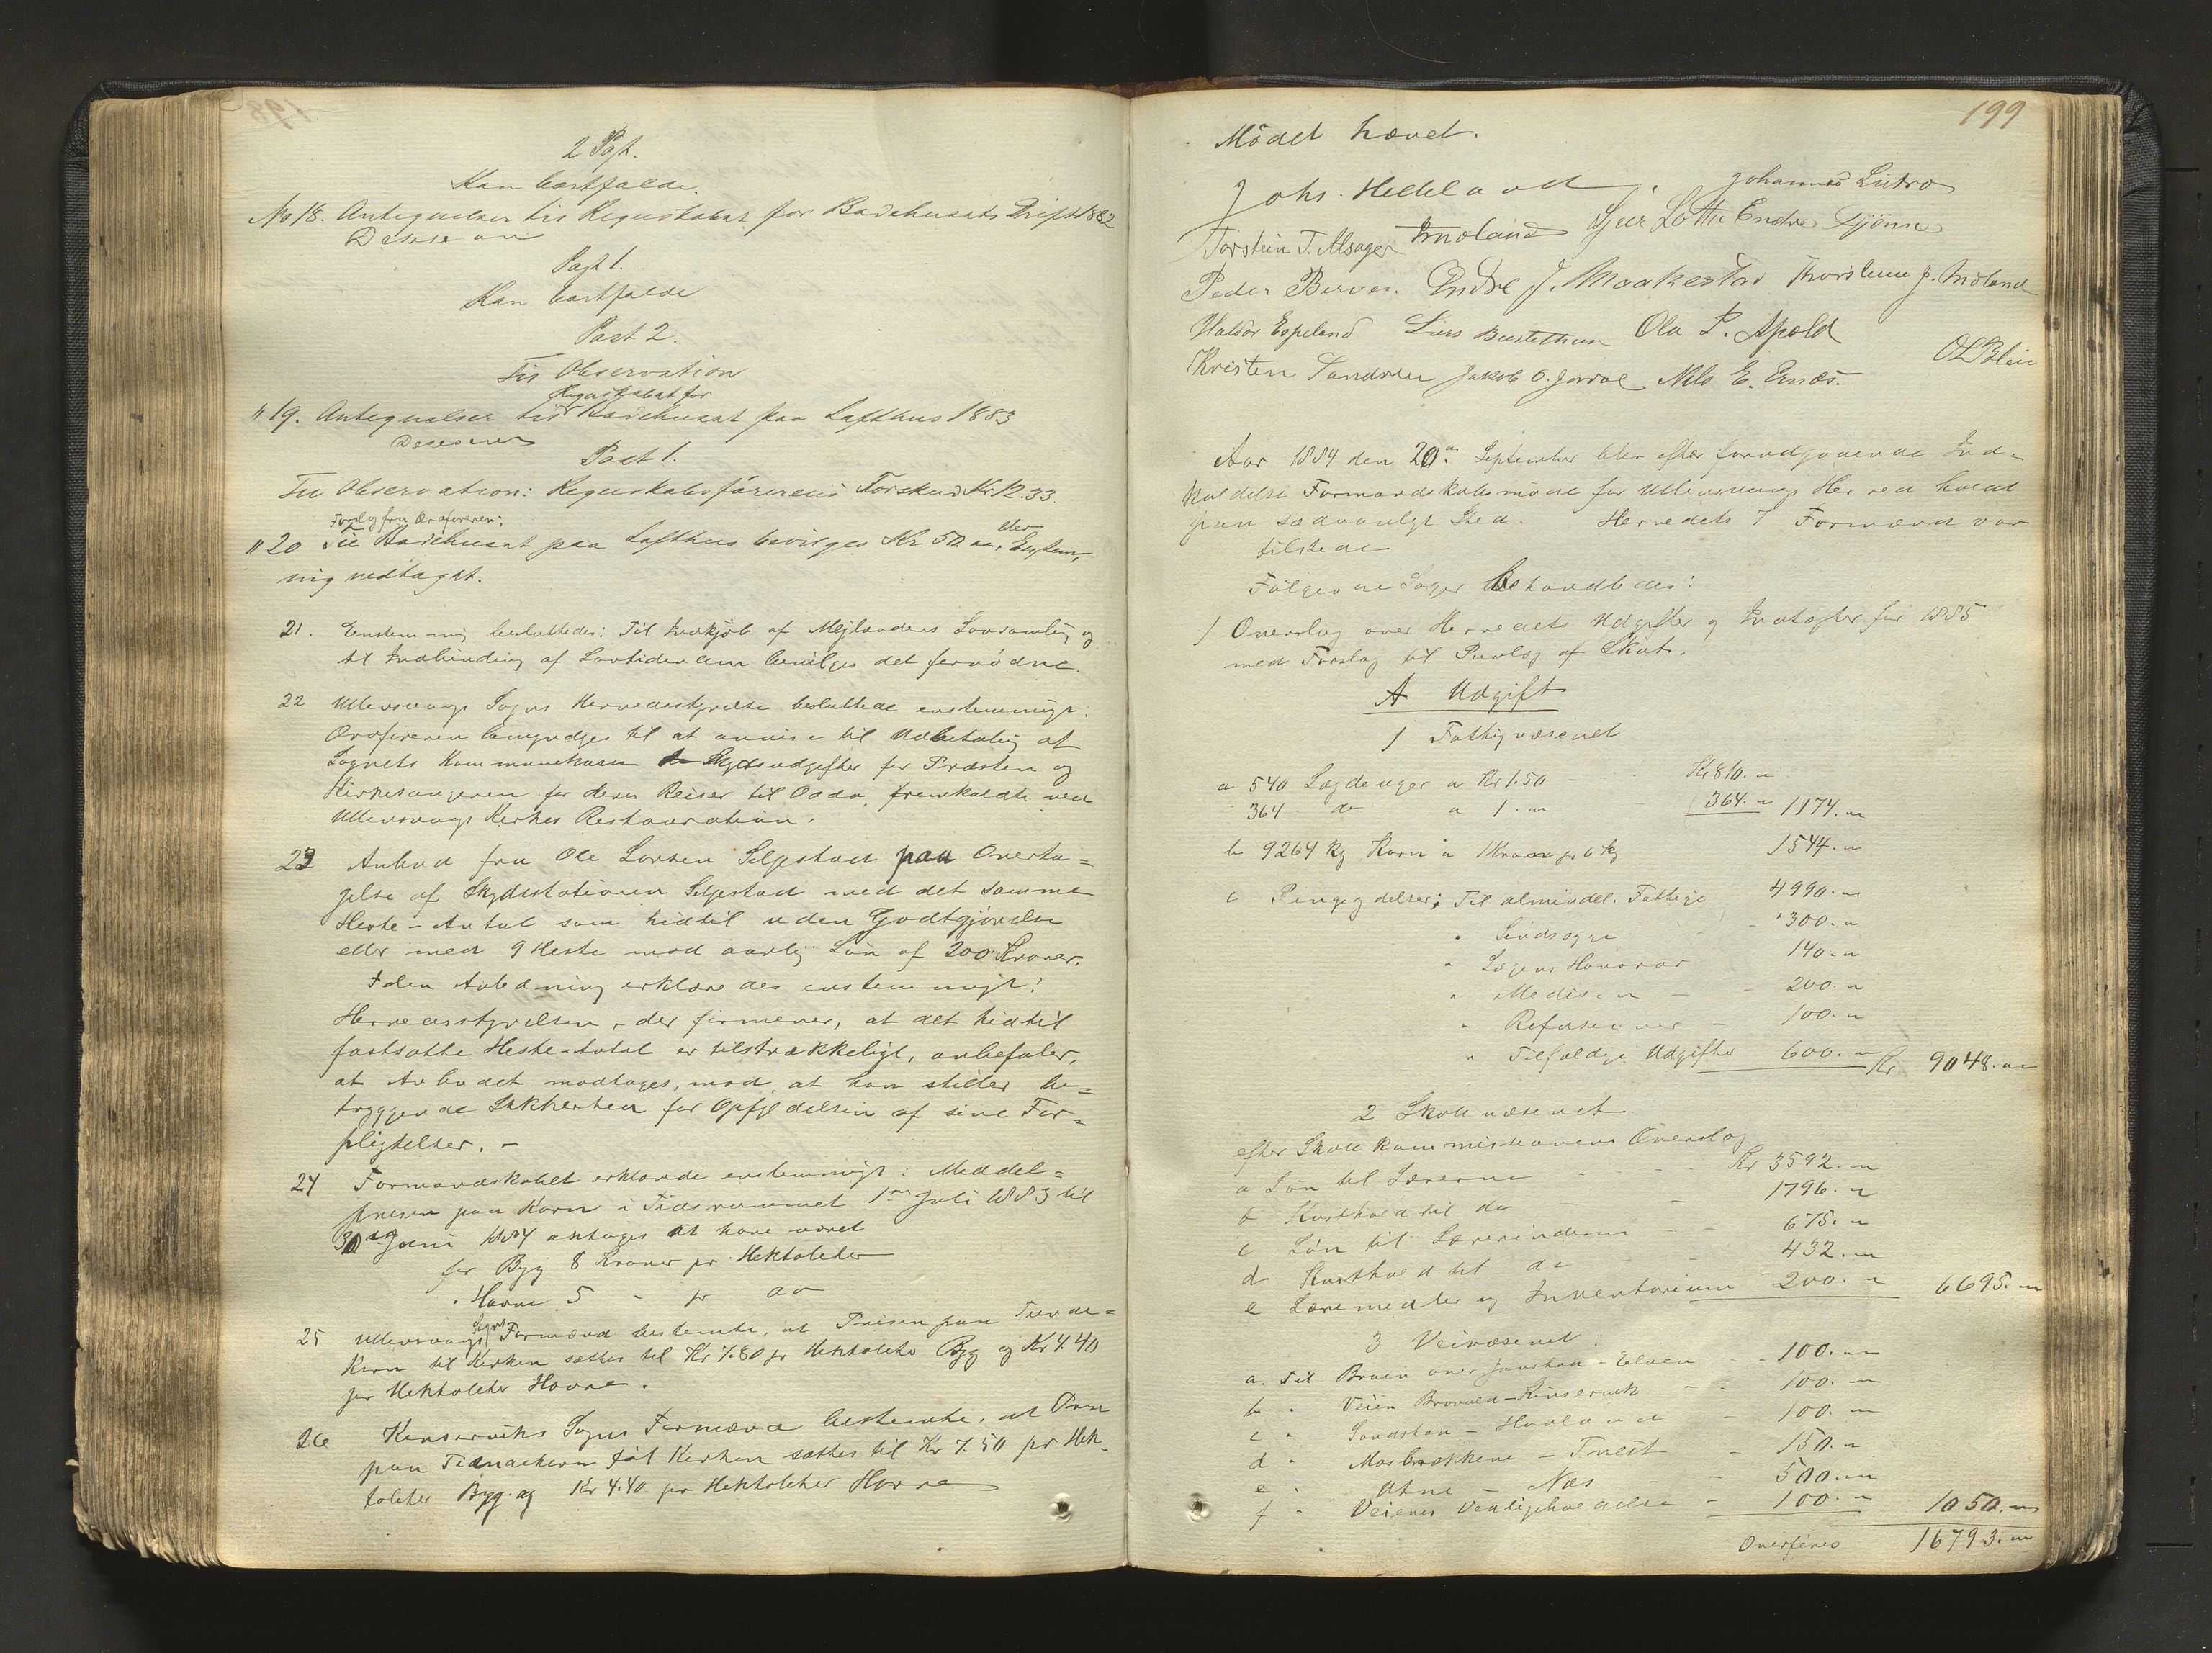 2 Post.
Kan bortfalde.
No 18. Antegnelser til Regnskabet for Badehusets Drift 1882
Desision
Post 1.
Kan bortfalde
Post 2.
Til Observation
Regnskabet for
" 19. Antegnelser til Badehuset paa Lofthus 1883
Desision
Post 1.
Til Observation: Regnskabsførerens Forskud Kr 12.33.
Forslag fra Ordføreren:
" 20 Til Badehuset paa Lofthus bevilges Kr 50 "
nig vedtaget.
21. Enstemmig besluttedes: Til Indkjøb af Mejlænders Lovsamling og
til Indbinding af Lovtidenden bevilges det fornødne.
22 Ullensvangs Sogns Herredsstyrelse besluttede enstemmigt:
Ordføreren bemyndiges til at anvise til Udbetaling af
Sognets Kommunekasse Skydsudgifter for Præsten og
Kirkesangeren for deres Reiser til Odda, fremkaldte ved
Ullensvangs Kirkes Restauration.
23 Anbud fra Ole Larsen Seljestad paa Overta=
gelse af Skydsstationen Seljestad med det samme
Heste-Antal som hidtil uden Godtgjørelse
eller med 9 Heste mod aarlig Løn af 200 Kroner.
I den Anledning erklæredes enstemmigt:
Herredsstyrelsen, der formener, at det hidtil
fastsatte Heste-Antal er tilstrækkeligt, anbefaler,
at Anbudet modtages, mod at han stiller be=
tryggende Sikkerhed for Opfyldelsen af sine For=
pligtelser. -
24 Formandskabet erklærede enstemmigt: Middel=
prisen paa Korn i Tidsrummet 1ste Juli 1883 til
30te Juni 1884 antages at have været
for Byg 8 Kroner pr Hektoliter
" Havre 5 - pr do
25 Ullensvangs Sogns Formænd bestemte, at Prisen paa Tiende=
Korn til Kirken sættes til Kr 7.80 pr Hektoliter Byg og Kr 4.40
pr Hektoliter Havre.
26 Kinserviks Sogns Formænd bestemte, at Prisen
paa Tiendekorn til Kirken sættes til Kr 7.50 pr Hek-
toliter Byg og Kr 4.40 pr Hektoliter Havre
199
Mödet hævet.
Johs. Helleland. Johannes Lutro
Torstein T. Alsager Sjur Lotte Endre Djønne
Peder Berven. Endre J. Maakestad Thorsteine J. Indland
Haldor Espeland Lars Bustethun Ola P. Apold
Kristen Sandven Jakob O. Jordal Nils E. Ernæs. O L Blie
Aar 1884 den 20de September blev efter forudgaaende Ind=
kaldelse Formandskabsmöde for Ullensvangs Herred holdt
paa sædvanligt Sted. Herredets 7 Formænd var
tilstede
Fölgende Sager behandledes:
1 Overslag over Herredets Udgifter og Indtægter for 1885
med Forslag til Paalæg af Skat.
A Udgift
1 Fattigvæsenet
a 540 Lægdeuger a Kr 1.50 - - - Kr 810. "
364 do a 1. " 364. " 1174. "
b 9264 Kg Korn a 1 Krone pr 6 Kg 1544. "
c Pengeydelser: Til almindel. Fattige 4990. "
" Sindssyge - 300. "
" Lægens Honorar 140. "
" Medisin - - 200. "
" Refusioner - 100. "
" Tilfældige Udgifter 600. " Kr 9048. "
2 Skolevæsenet
efter Skolekommissionens Overslag
a Løn til Lærerne - - Kr 3592. "
b Kosthold til do - - 1796. "
c Løn til Lærerinderne - - 675. "
d Kosthold til do - 432. "
e Læremidler og Inventarium 200. " 6695. "
3 Veivæsenet:
a. Til Broen over - Elven - - 100. "
b " Veien Brovold - Kinservik - - 100. "
c " Sandstøa - Hovland - 100. "
d " - Tveit - 150. "
e " Utne - Næs - - 500. "
f " Veienes Vedligeholdelse - 100. " 1050. "
Overføres 16793. "